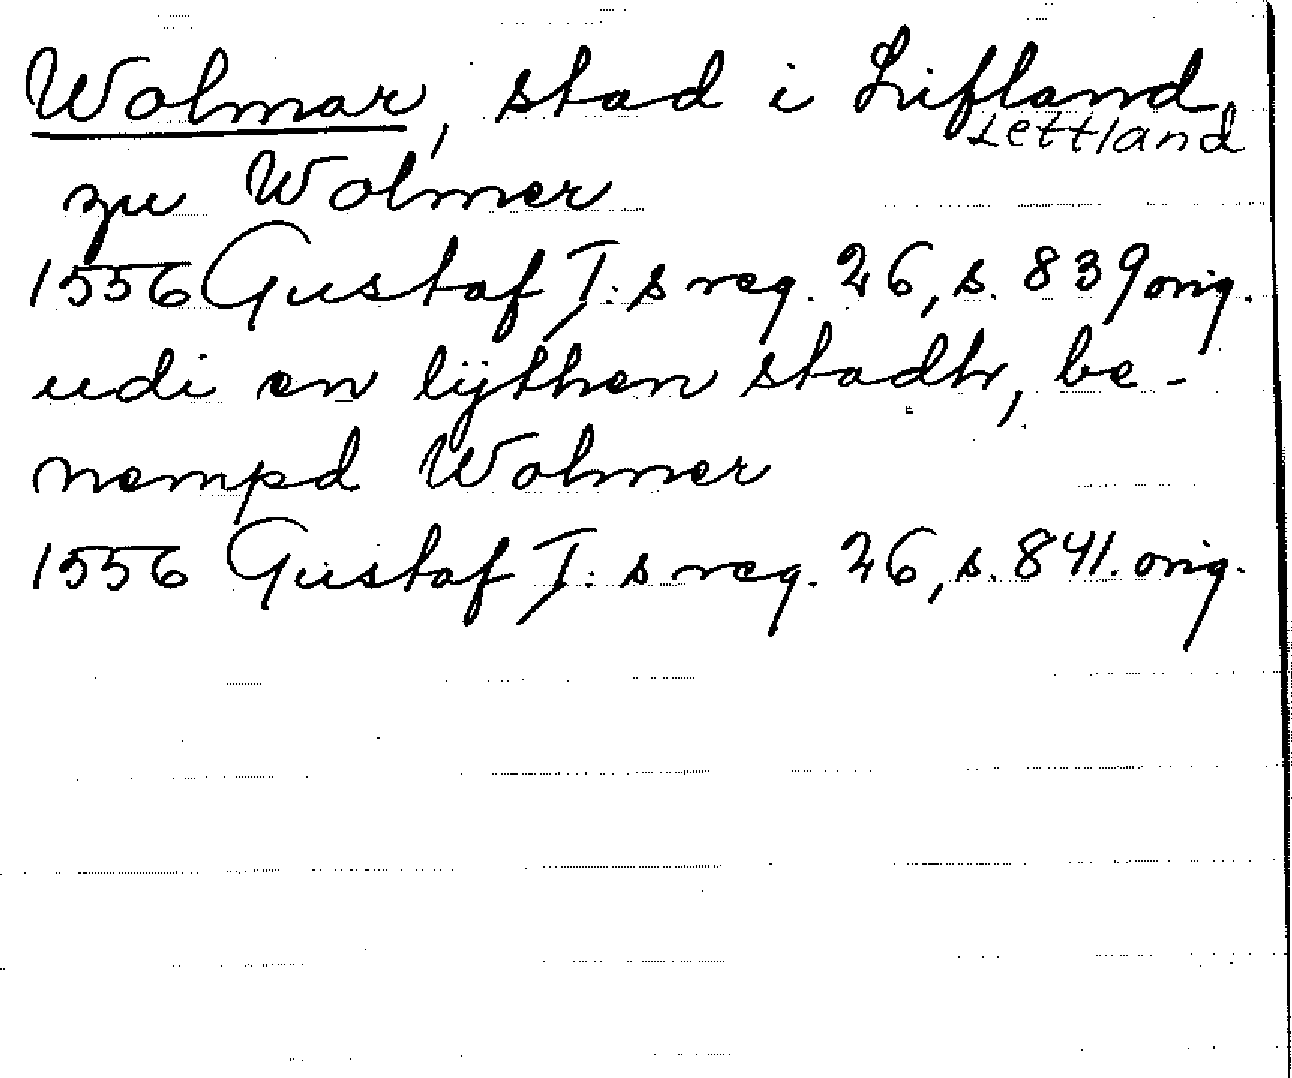 Wolmar, stad i Lifland
Lettland
zu Wolmer
1556 Gustaf I: s reg. 26, s. 839 orig.
udi en lijthen stadh, be-
nempd Wolmer
1556 Gustaf I: s reg. 26, s. 841. orig.